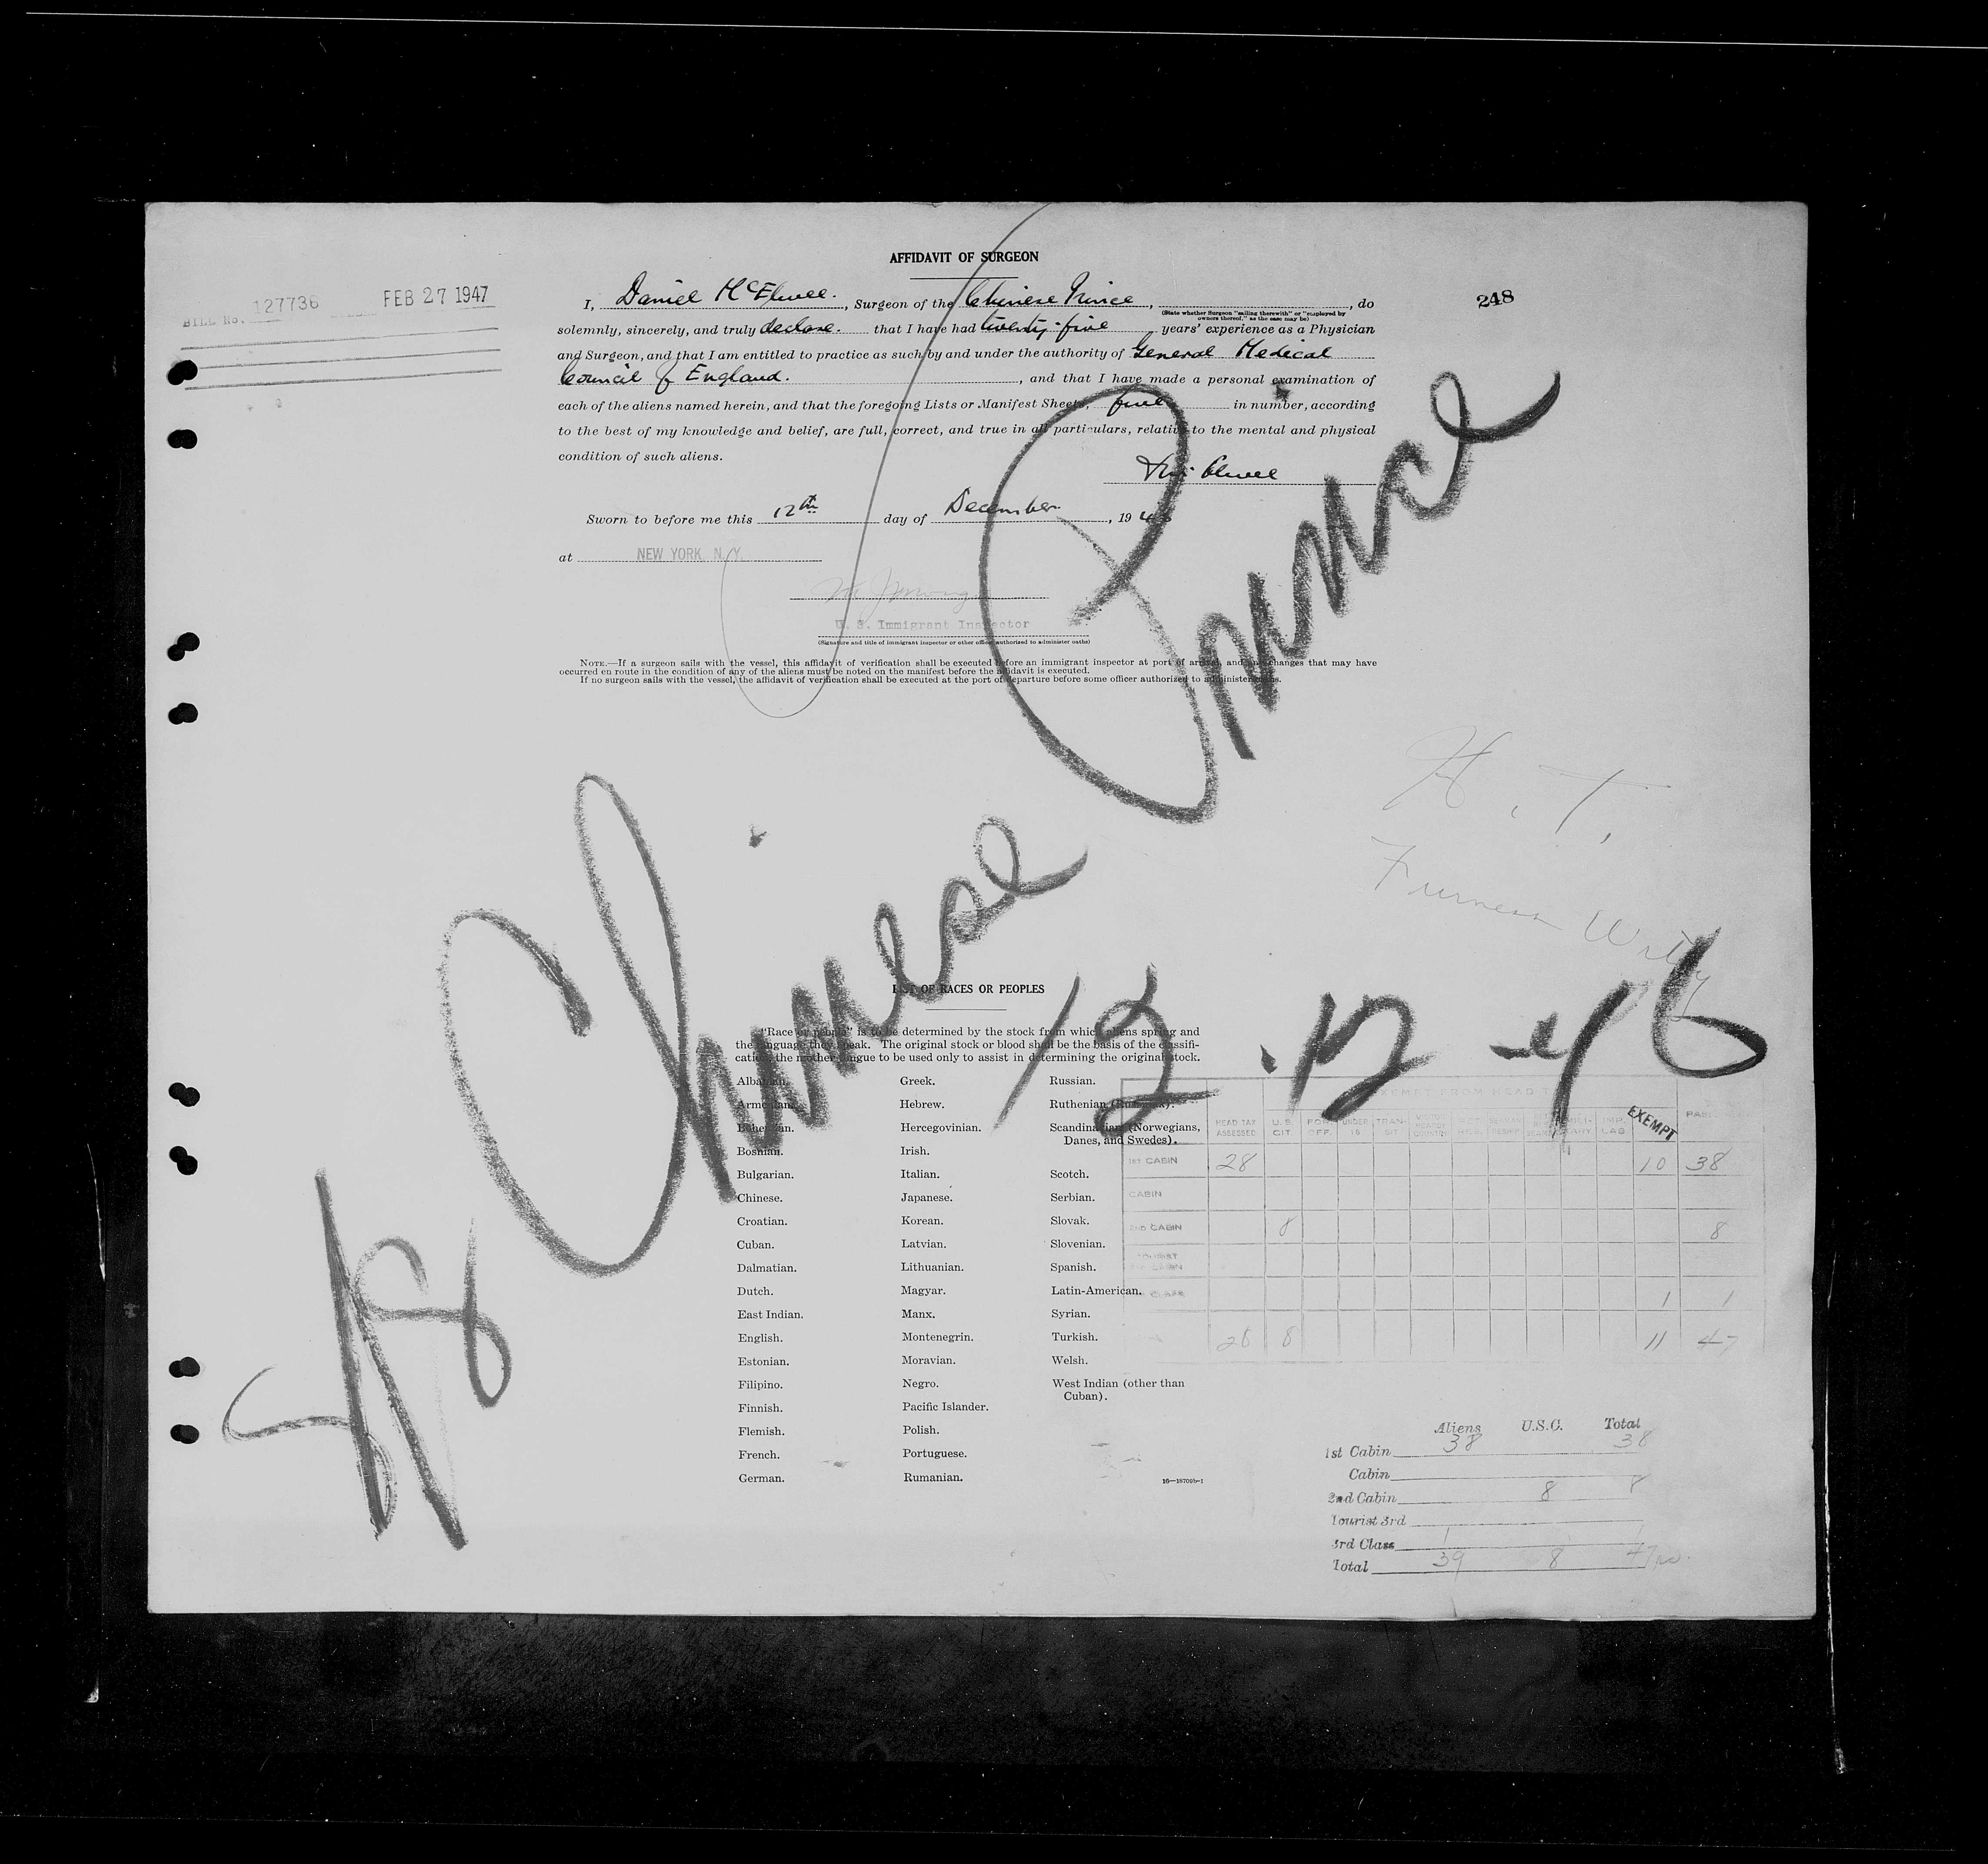 AFFIDAVIT OF SURGEON
248
BILL No. 127736 FEB 27 1947
I, Daniel McElwee., Surgeon of the Chinese Prince, , do
(State whether Surgeon "sailing therewith" or "employed by owners thereof," as the case may be)
solemnly, sincerely, and truly declare. that I have had twenty-five years' experience as a Physician
and Surgeon, and that I am entitled to practice as such by and under the authority of General Medical
Council of England. , and that I have made a personal examination of
each of the aliens named herein, and that the foregoing Lists or Manifest Sheets, five in number, according
to the best of my knowledge and belief, are full, correct, and true in all particulars, relative to the mental and physical
condition of such aliens.
McElwee
Sworn to before me this 12th day of December, 1946
at NEW YORK, N.Y.
U. S. Immigrant Inspector
(Signature and title of immigrant inspector or other officer authorized to administer oaths)
NOTE.—If a surgeon sails with the vessel, this affidavit of verification shall be executed before an immigrant inspector at port of arrival, and any changes that may have
occurred en route in the condition of any of the aliens must be noted on the manifest before the affidavit is executed.
If no surgeon sails with the vessel, the affidavit of verification shall be executed at the port of departure before some officer authorized to administer oaths.
Chinese Prince
12-12-46
H. T.
Furness Withy
LIST OF RACES OR PEOPLES
"Race or people" is to be determined by the stock from which aliens spring and
the language they speak. The original stock or blood shall be the basis of the classifi-
cation, the mother tongue to be used only to assist in determining the original stock.
Albanian. Greek. Russian.
Armenian. Hebrew. Ruthenian (Russniak).
Bohemian. Hercegovinian. Scandinavian (Norwegians,
Danes, and Swedes).
Bosnian. Irish.
Bulgarian. Italian. Scotch.
Chinese. Japanese. Serbian.
Croatian. Korean. Slovak.
Cuban. Latvian. Slovenian.
Dalmatian. Lithuanian. Spanish.
Dutch. Magyar. Latin-American.
East Indian. Manx. Syrian.
English. Montenegrin. Turkish.
Estonian. Moravian. Welsh.
Filipino. Negro. West Indian (other than
Cuban).
Finnish. Pacific Islander.
Flemish. Polish.
French. Portuguese.
German. Rumanian.
16—18709b-1
HEAD TAX ASSESSED U. S. CIT. FOR. OFF. UNDER 16 TRAN- SIT EXEMPT
1ST CABIN 28 10 38
CABIN
2ND CABIN 8 8
1 1
28 8 11 47
Aliens U.S.C. Total
1st Cabin 38 38
Cabin
2nd Cabin 8 8
Tourist 3rd
3rd Class 1 1
Total 39 8 47